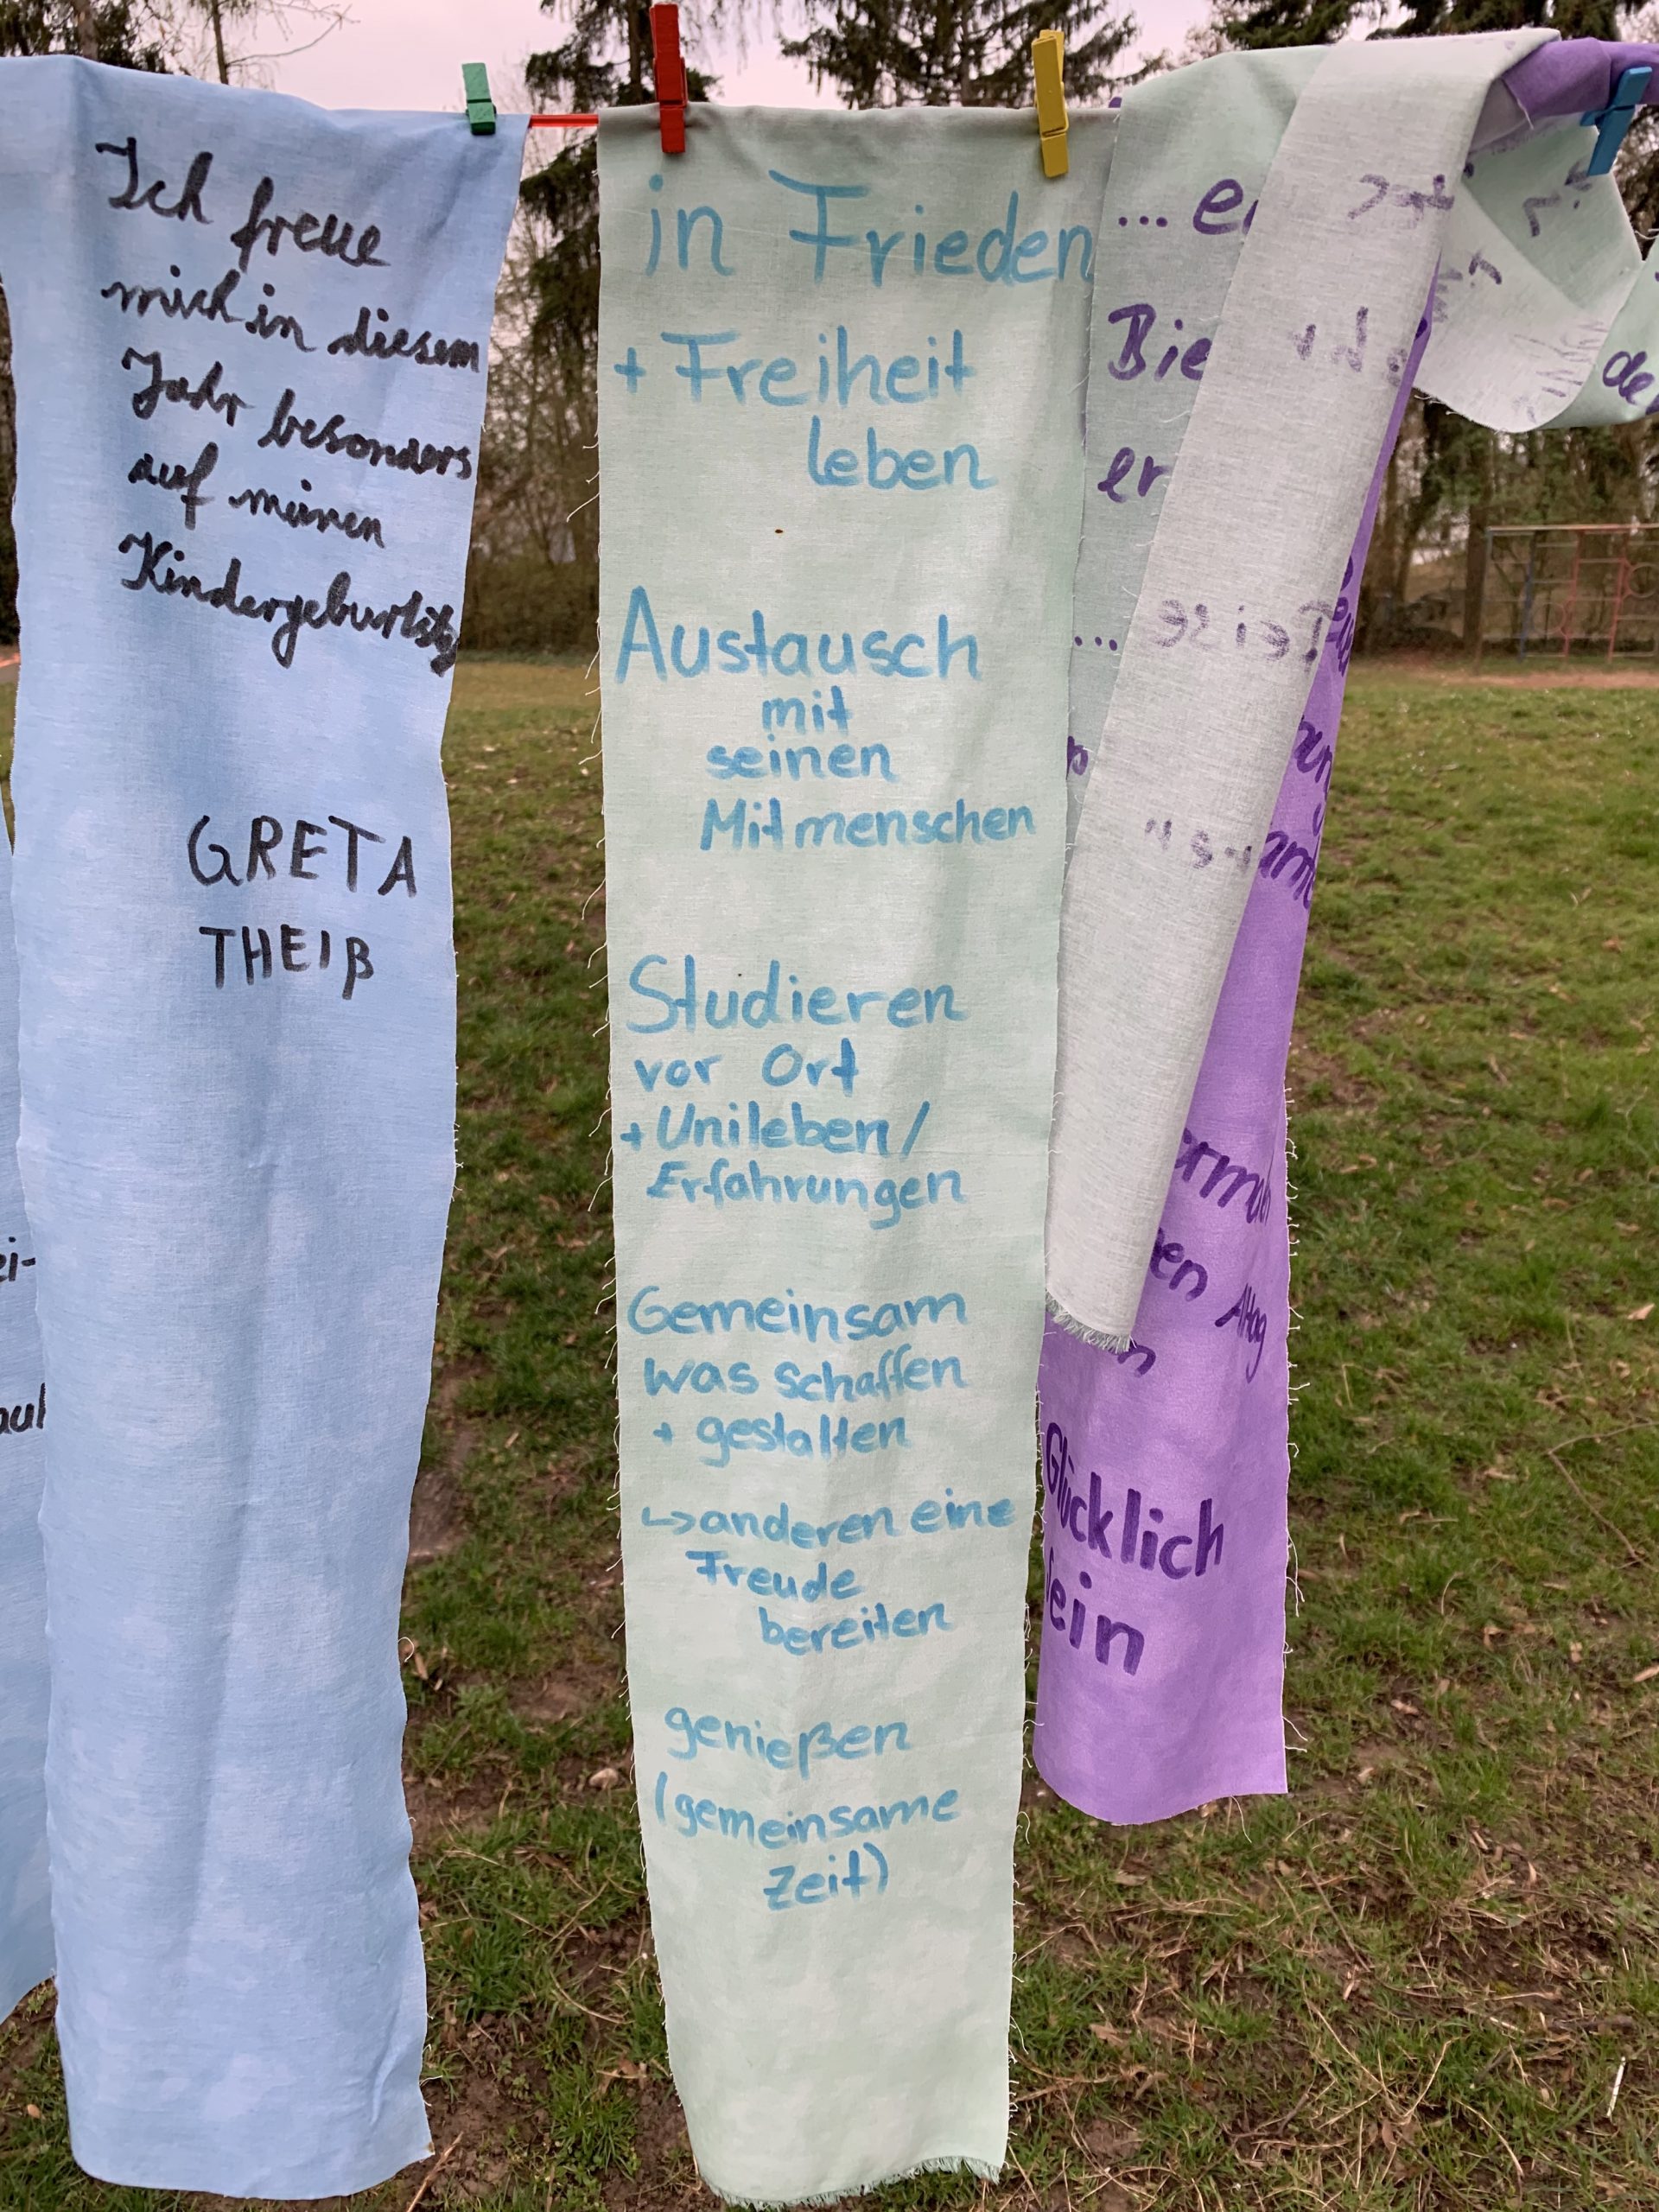 Ich freue
mich in diesem
Jahr besonders
auf meinen
Kindergeburtstag
GRETA
THEIß
in Frieden
+ Freiheit
leben
Austausch
mit
seinen
Mitmenschen
Studieren
vor Ort
+ Unileben/
Erfahrungen
Gemeinsam
was schaffen
+ gestalten
↳ anderen eine
Freude
bereiten
genießen
(gemeinsame
Zeit)
...
Bie
er
...
Alltag
Glücklich
sein